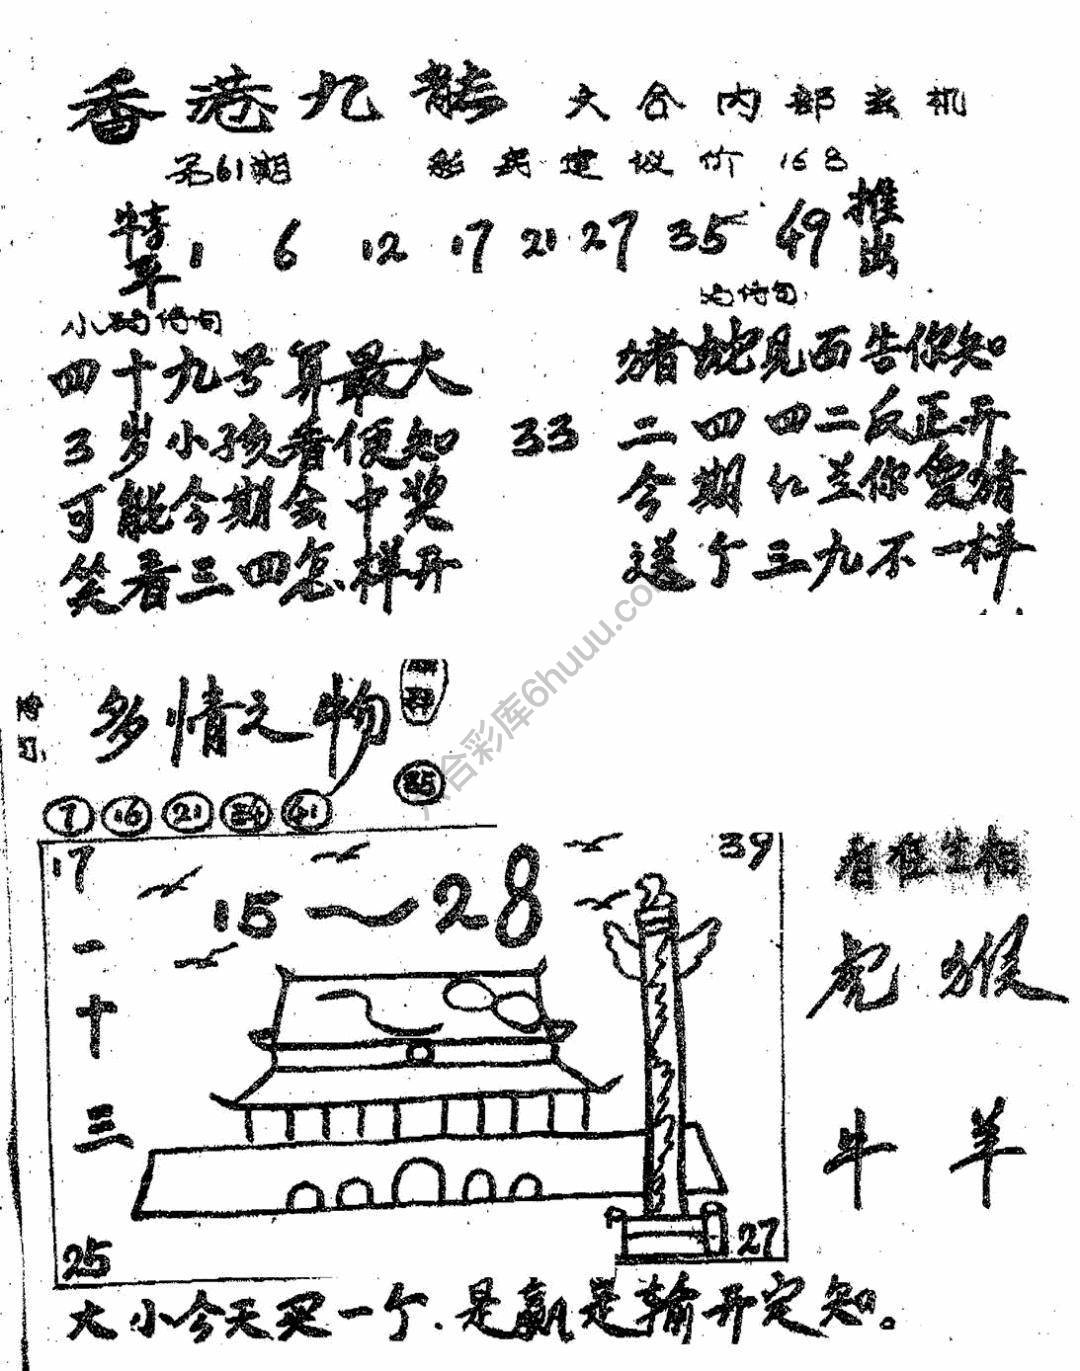 香港九龍 六合内部玄机
第61期 彩民建议价168
特平 1 6 12 17 21 27 35 49 推出
小码诗句
四十九号算最大
3岁小孩看便知
可能今期会中奖
笑看三四怎样开
33
诗句
猪蛇见面告你知
二四四二反正开
今期红兰你爱猜
送个三九不一样
多情之物
35
7 16 21 34 41
17 15～28 39
一十三
25 27
看准生相
虎猴
牛羊
大小今天买一个.是赢是输开定知。
六合彩库6huuu.com